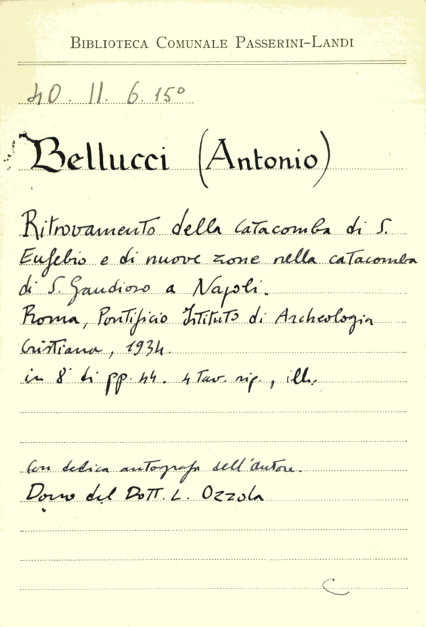 BIBLIOTECA COMUNALE PASSERINI-LANDI
40. II. 6. 15°
Bellucci (Antonio)
Ritrovamento della catacomba di S.
Eufebio e di nuove zone nella catacomba
di S. Gaudioso a Napoli.
Roma, Pontificio Istituto di Archeologia
Cristiana, 1934.
in 8° di pp. 44. 4 tav. rip., ill.
Con dedica autografa dell'autore.
Dono del Dott. L. Ozzola
C